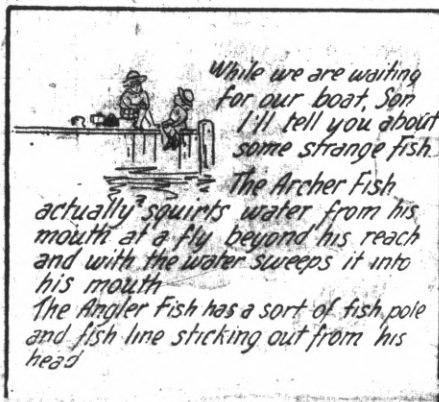 While we are waiting
for our boat, Son
I'll tell you about
some strange fish.
The Archer Fish
actually squirts water from his
mouth at a fly beyond his reach
and with the water sweeps it into
his mouth
The Angler Fish has a sort of fish pole
and fish line sticking out from his
head